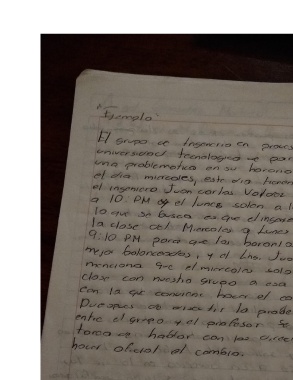 Ejemplo
El grupo de Ingenieria en proces
universidad tecnologica de
una problematica en su horario
el dia miercoles, este dia tienen
el ingeniero Juan carlos Valdez
a 10 PM y el lunes salen a l
lo que se busca es que el ingenie
la clase del Mercoles a Lunes
9:10 PM para que los horarios
mejor balanceados, y el Ing. Jua
menciona que el miercoles solo
clase con nuestro grupo a esa
con la que conviene hacer el ca
Duespues de discutir la proble
entre el grupo y el profesor se
tarea de hablar con las direc
hacer oficial el cambio.